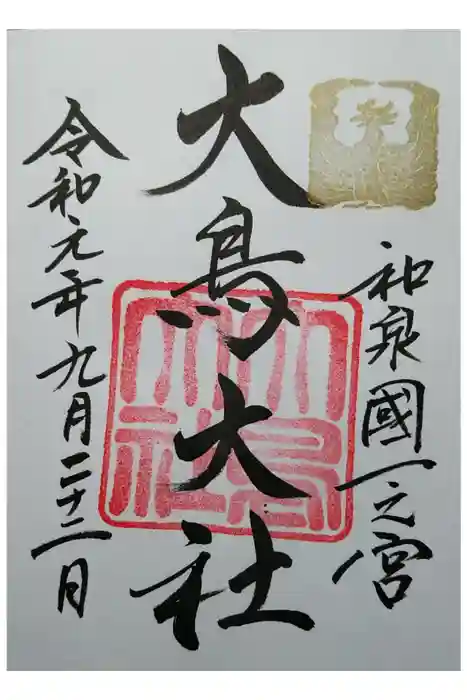 和泉國一之宮
大鳥大社
大鳥大社
令和元年九月二十二日